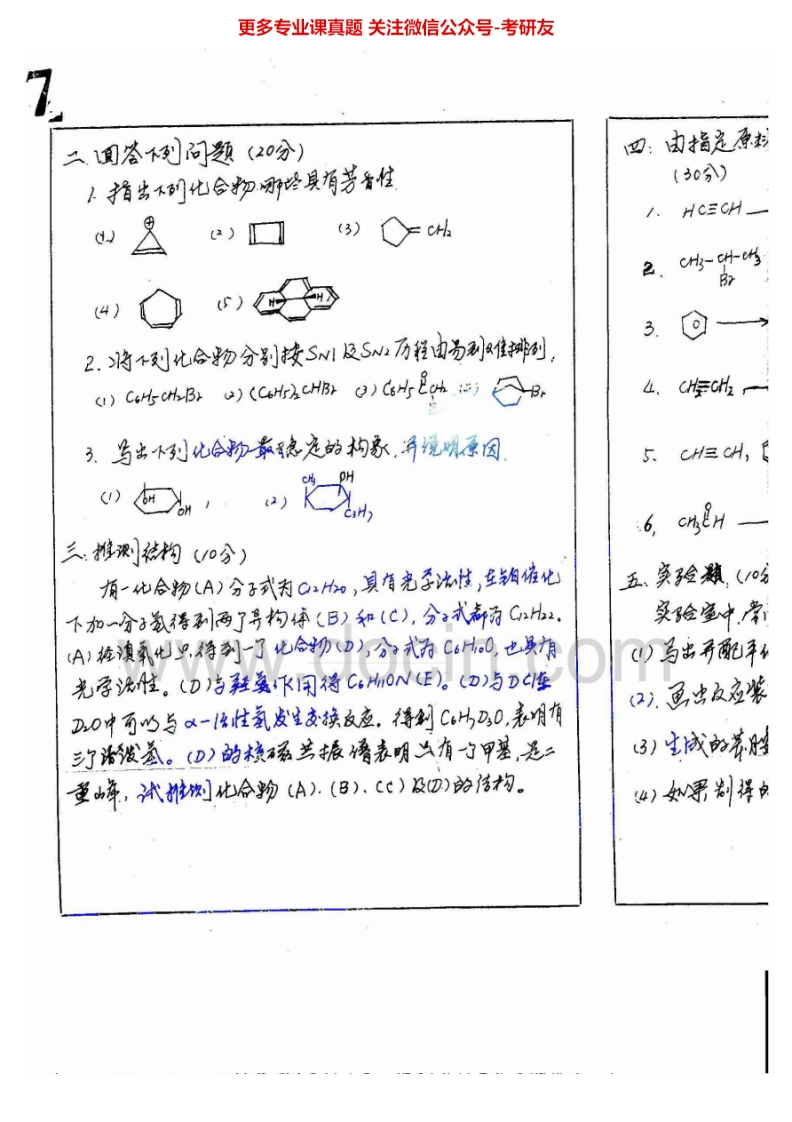 更多专业课真题 关注微信公众号-考研友
7
二、回答下列问题 (20分)
1. 指出下列化合物哪些具有芳香性
(1) ⊕ (2) (3) =CH2
(4) (5) H H
2. 将下列化合物分别按SN1及SN2历程由易到难排列.
(1) C6H5CH2Br (2) (C6H5)2CHBr (3) C6H5 O Br
3. 写出下列化合物最稳定的构象,并说明原因.
(1) OH OH , (2) CH3 OH C3H7
三、推测结构 (10分)
有一化合物(A)分子式为C12H20,具有光学活性,在铂催化
下加一分子氢得到两个异构体(B)和(C),分子式都为C12H22.
(A)经臭氧化只得到一个化合物(D),分子式为C6H10O,也具有
光学活性。(D)与羟氨作用得C6H11ON(E)。(D)与DCl在
D2O中可以与α-活性氢发生交换反应。得到C6H7D3O,表明有
三个活泼氢。(D)的核磁共振谱表明只有一个甲基,是二
重峰,试推测化合物(A).(B).(C)及(D)的结构。
www.docin.com
四: 由指定原料
(30分)
1. HC≡CH
2. CH3-CH-CH3
Br
3.
4.
5. CH≡CH,
6, CH3CH
O
五、实验题 (10分
实验室中,常
(1) 写出并配平
(2). 画出反应装
(3) 生成的苯胺
(4) 如果制得的